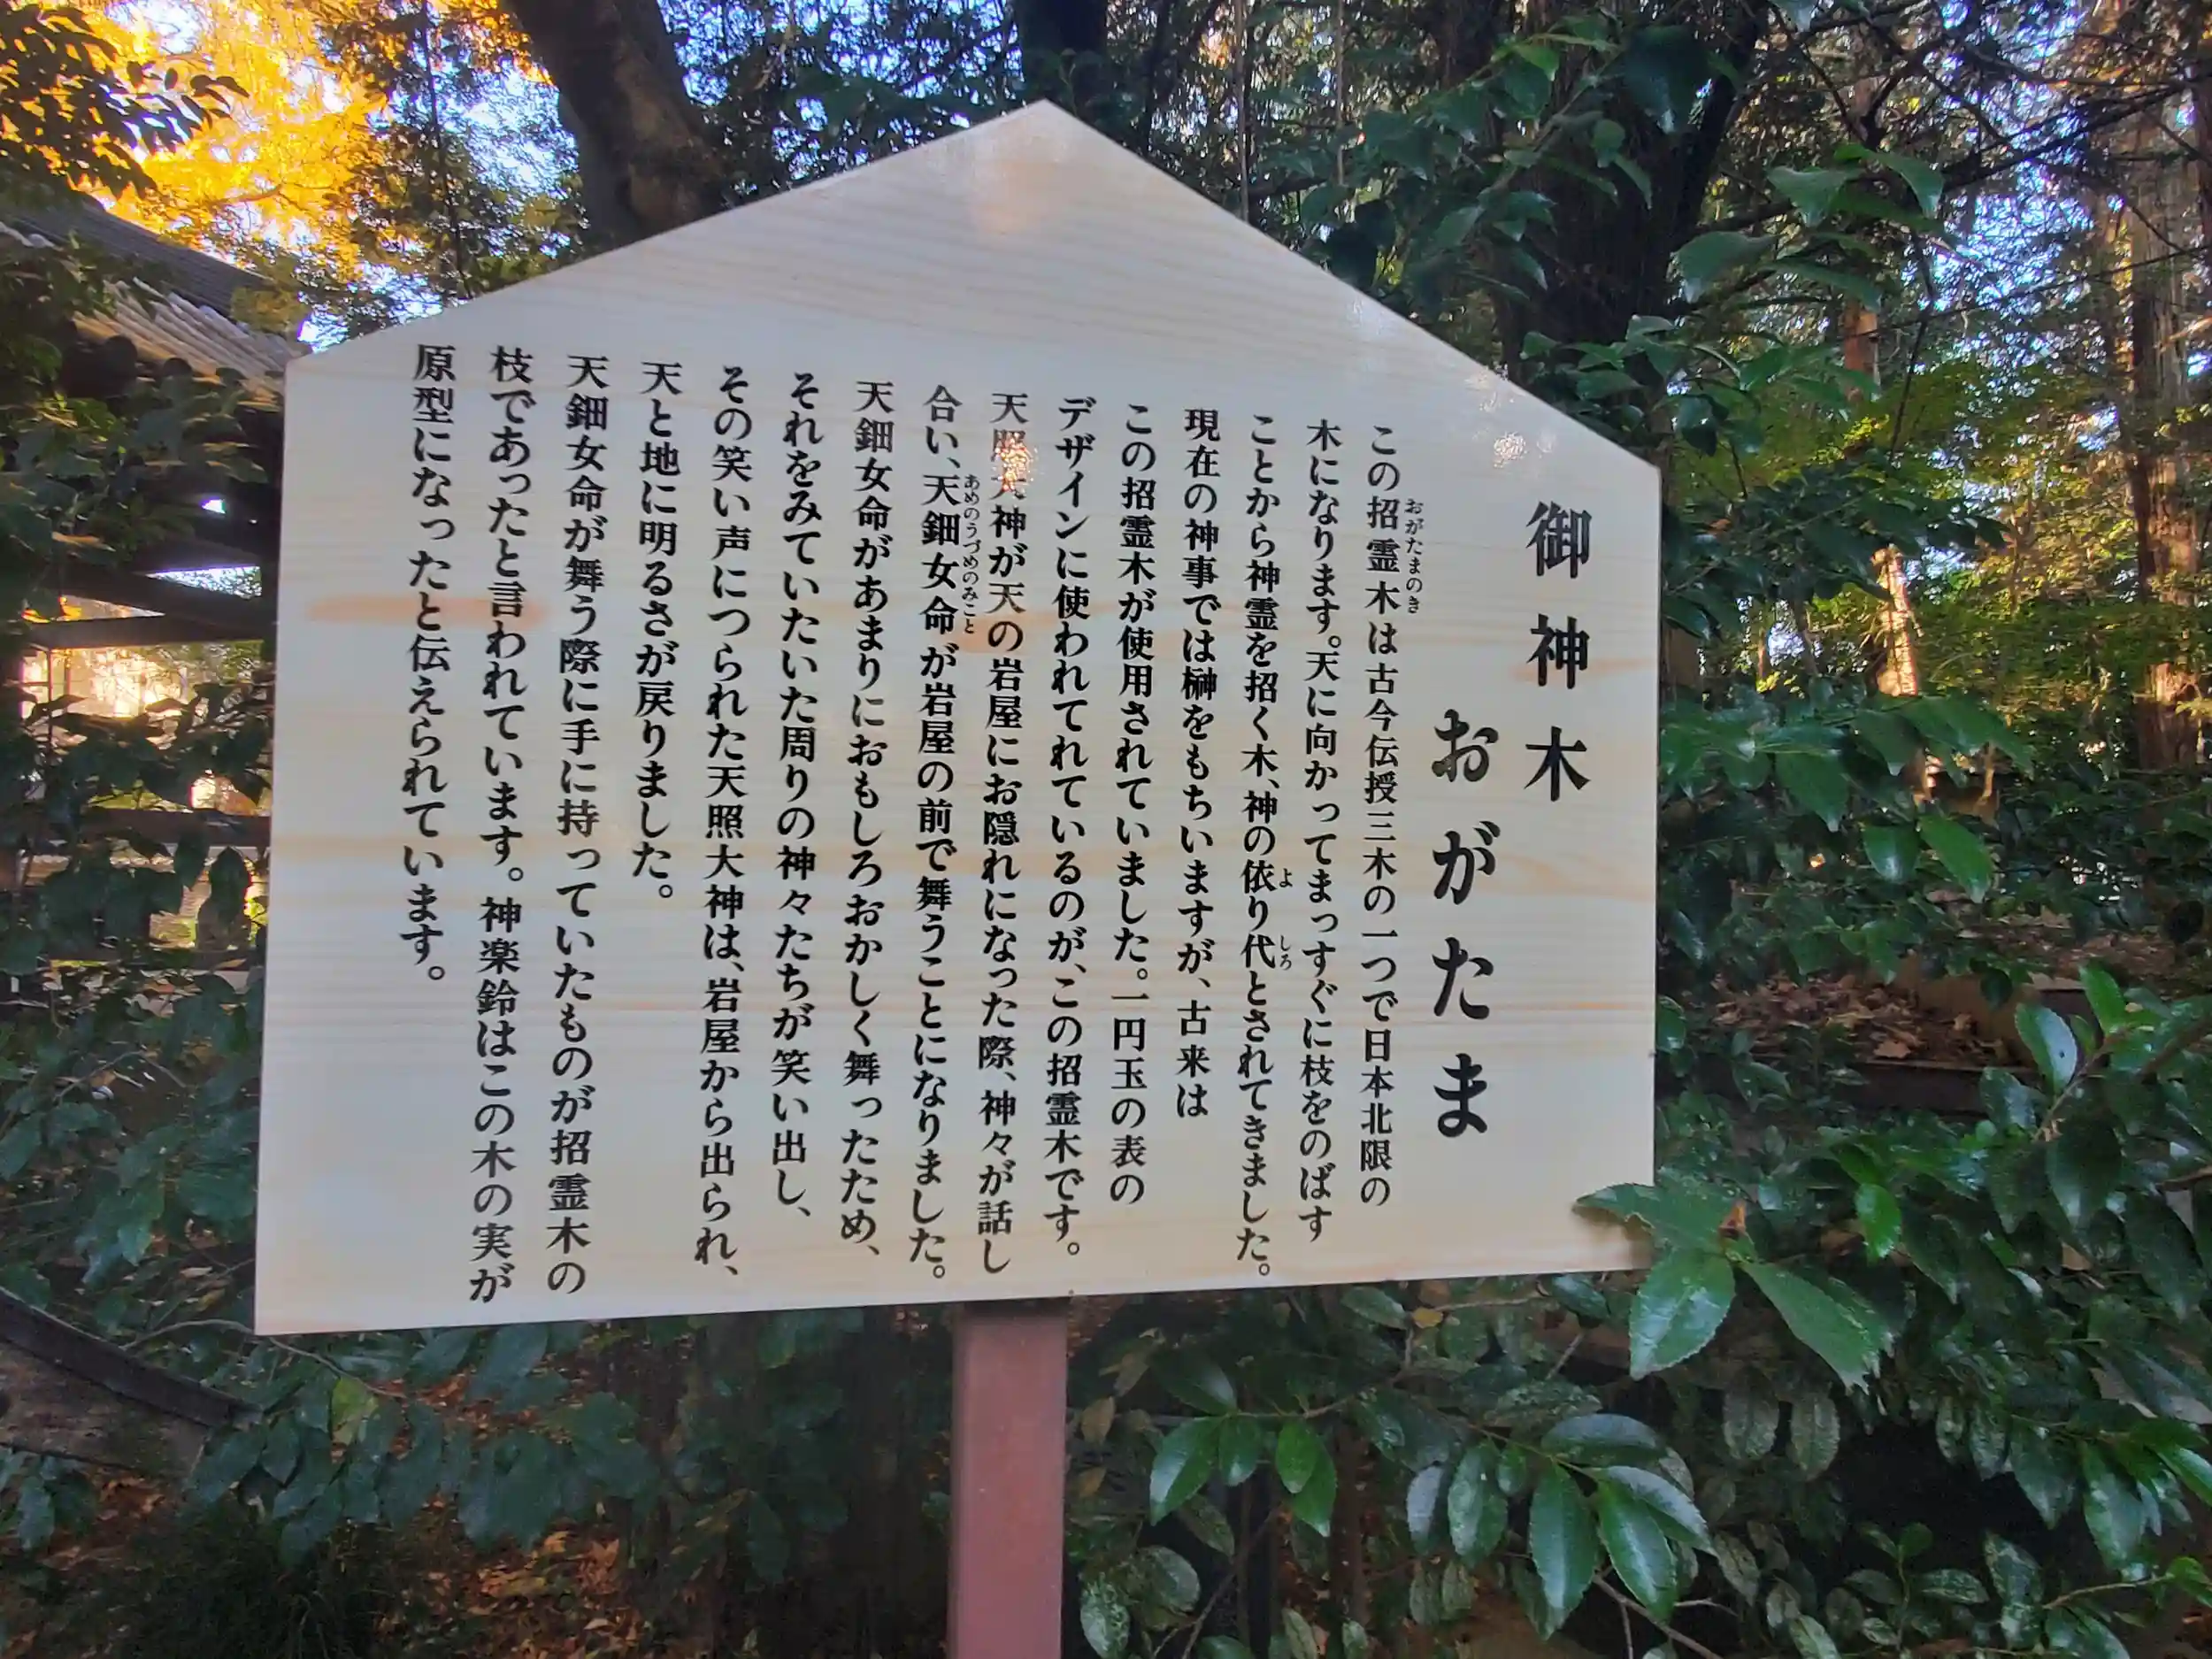 御神木
おがたま
この招霊木は古今伝授三木の一つで日本北限の
おがたまのき
木になります。天に向かってまっすぐに枝をのばす
ことから神霊を招く木、神の依り代とされてきました。
よ
しろ
現在の神事では榊をもちいますが、古来は
この招霊木が使用されていました。一円玉の表の
デザインに使われてれているのが、この招霊木です。
天照大神が天の岩屋にお隠れになった際、神々が話し
合い、天鈿女命が岩屋の前で舞うことになりました。
あめのうづめのみこと
天鈿女命があまりにおもしろおかしく舞ったため、
それをみていたいた周りの神々たちが笑い出し、
その笑い声につられた天照大神は、岩屋から出られ、
天と地に明るさが戻りました。
天鈿女命が舞う際に手に持っていたものが招霊木の
枝であったと言われています。神楽鈴はこの木の実が
原型になったと伝えられています。